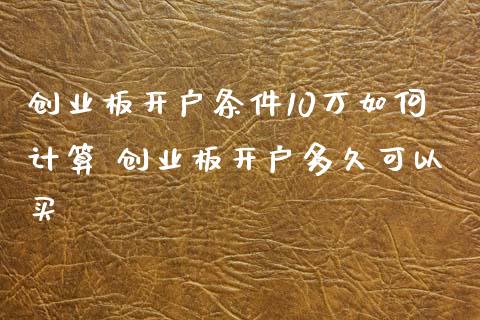 创业板开户条件10万如何
计算 创业板开户多久可以
买